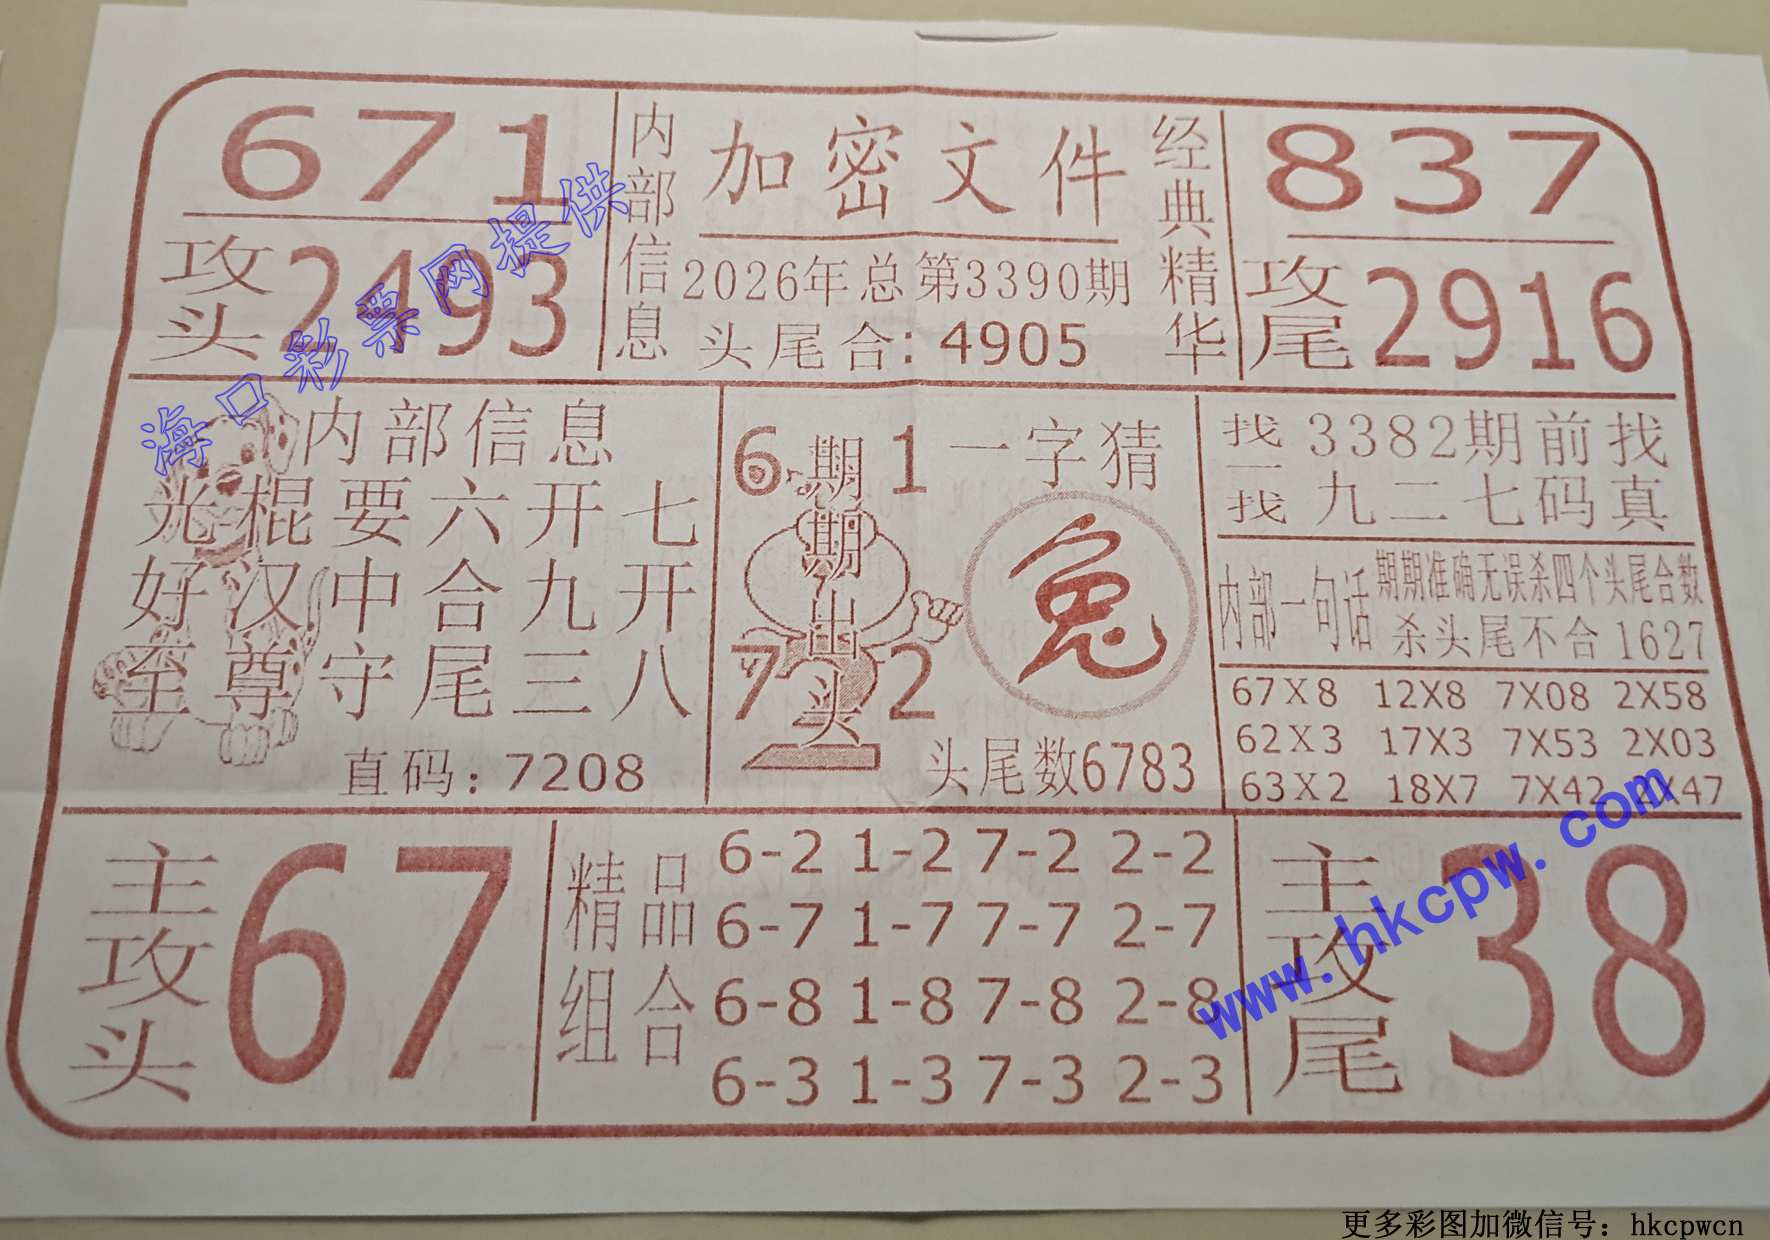 671
攻头 2493
内部信息
加密文件
2026年总第3390期
头尾合:4905
经典精华
837
攻尾 2916
内部信息
光棍要六开七
好汉中合九开
至尊守尾三八
直码:7208
6 1
期期出头
7 2
一字猜
兔
头尾数6783
找一找
3382期前找
九二七码真
内部一句话
期期准确无误杀四个头尾合数
杀头尾不合1627
67X8 12X8 7X08 2X58
62X3 17X3 7X53 2X03
63X2 18X7 7X42 2X47
主攻头 67
精品组合
6-2 1-2 7-2 2-2
6-7 1-7 7-7 2-7
6-8 1-8 7-8 2-8
6-3 1-3 7-3 2-3
主攻尾 38
海口彩票网提供
www.hkcpw.com
更多彩图加微信号:hkcpwcn